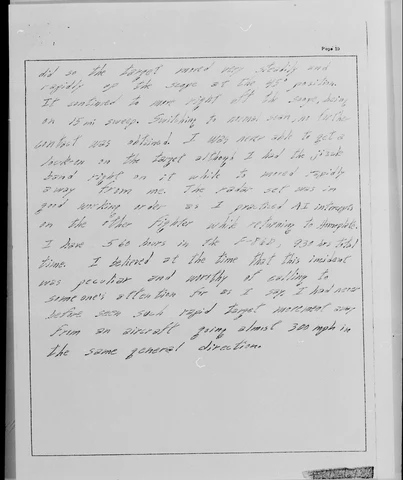 Page
did so the target moved very steadily and
rapidly up the scope at the 45° position.
It continued to move right off the scope, being
on 15 mi sweep. Switching to scan, no further
contact was obtained. I was never able to get a
lock-on on the target although I had the
band right on it while it moved rapidly
away from me. The radar set was in
good working order as I practiced AI intercepts
on the other fighter while returning to
I have 560 hours in the F-86D, 930 hrs total
time. I believed at the time that this incident
was peculiar and worthy of calling to
someone's attention for as I say, I had never
before seen such rapid target movement away
from an aircraft going almost 300 mph in
the same general direction.